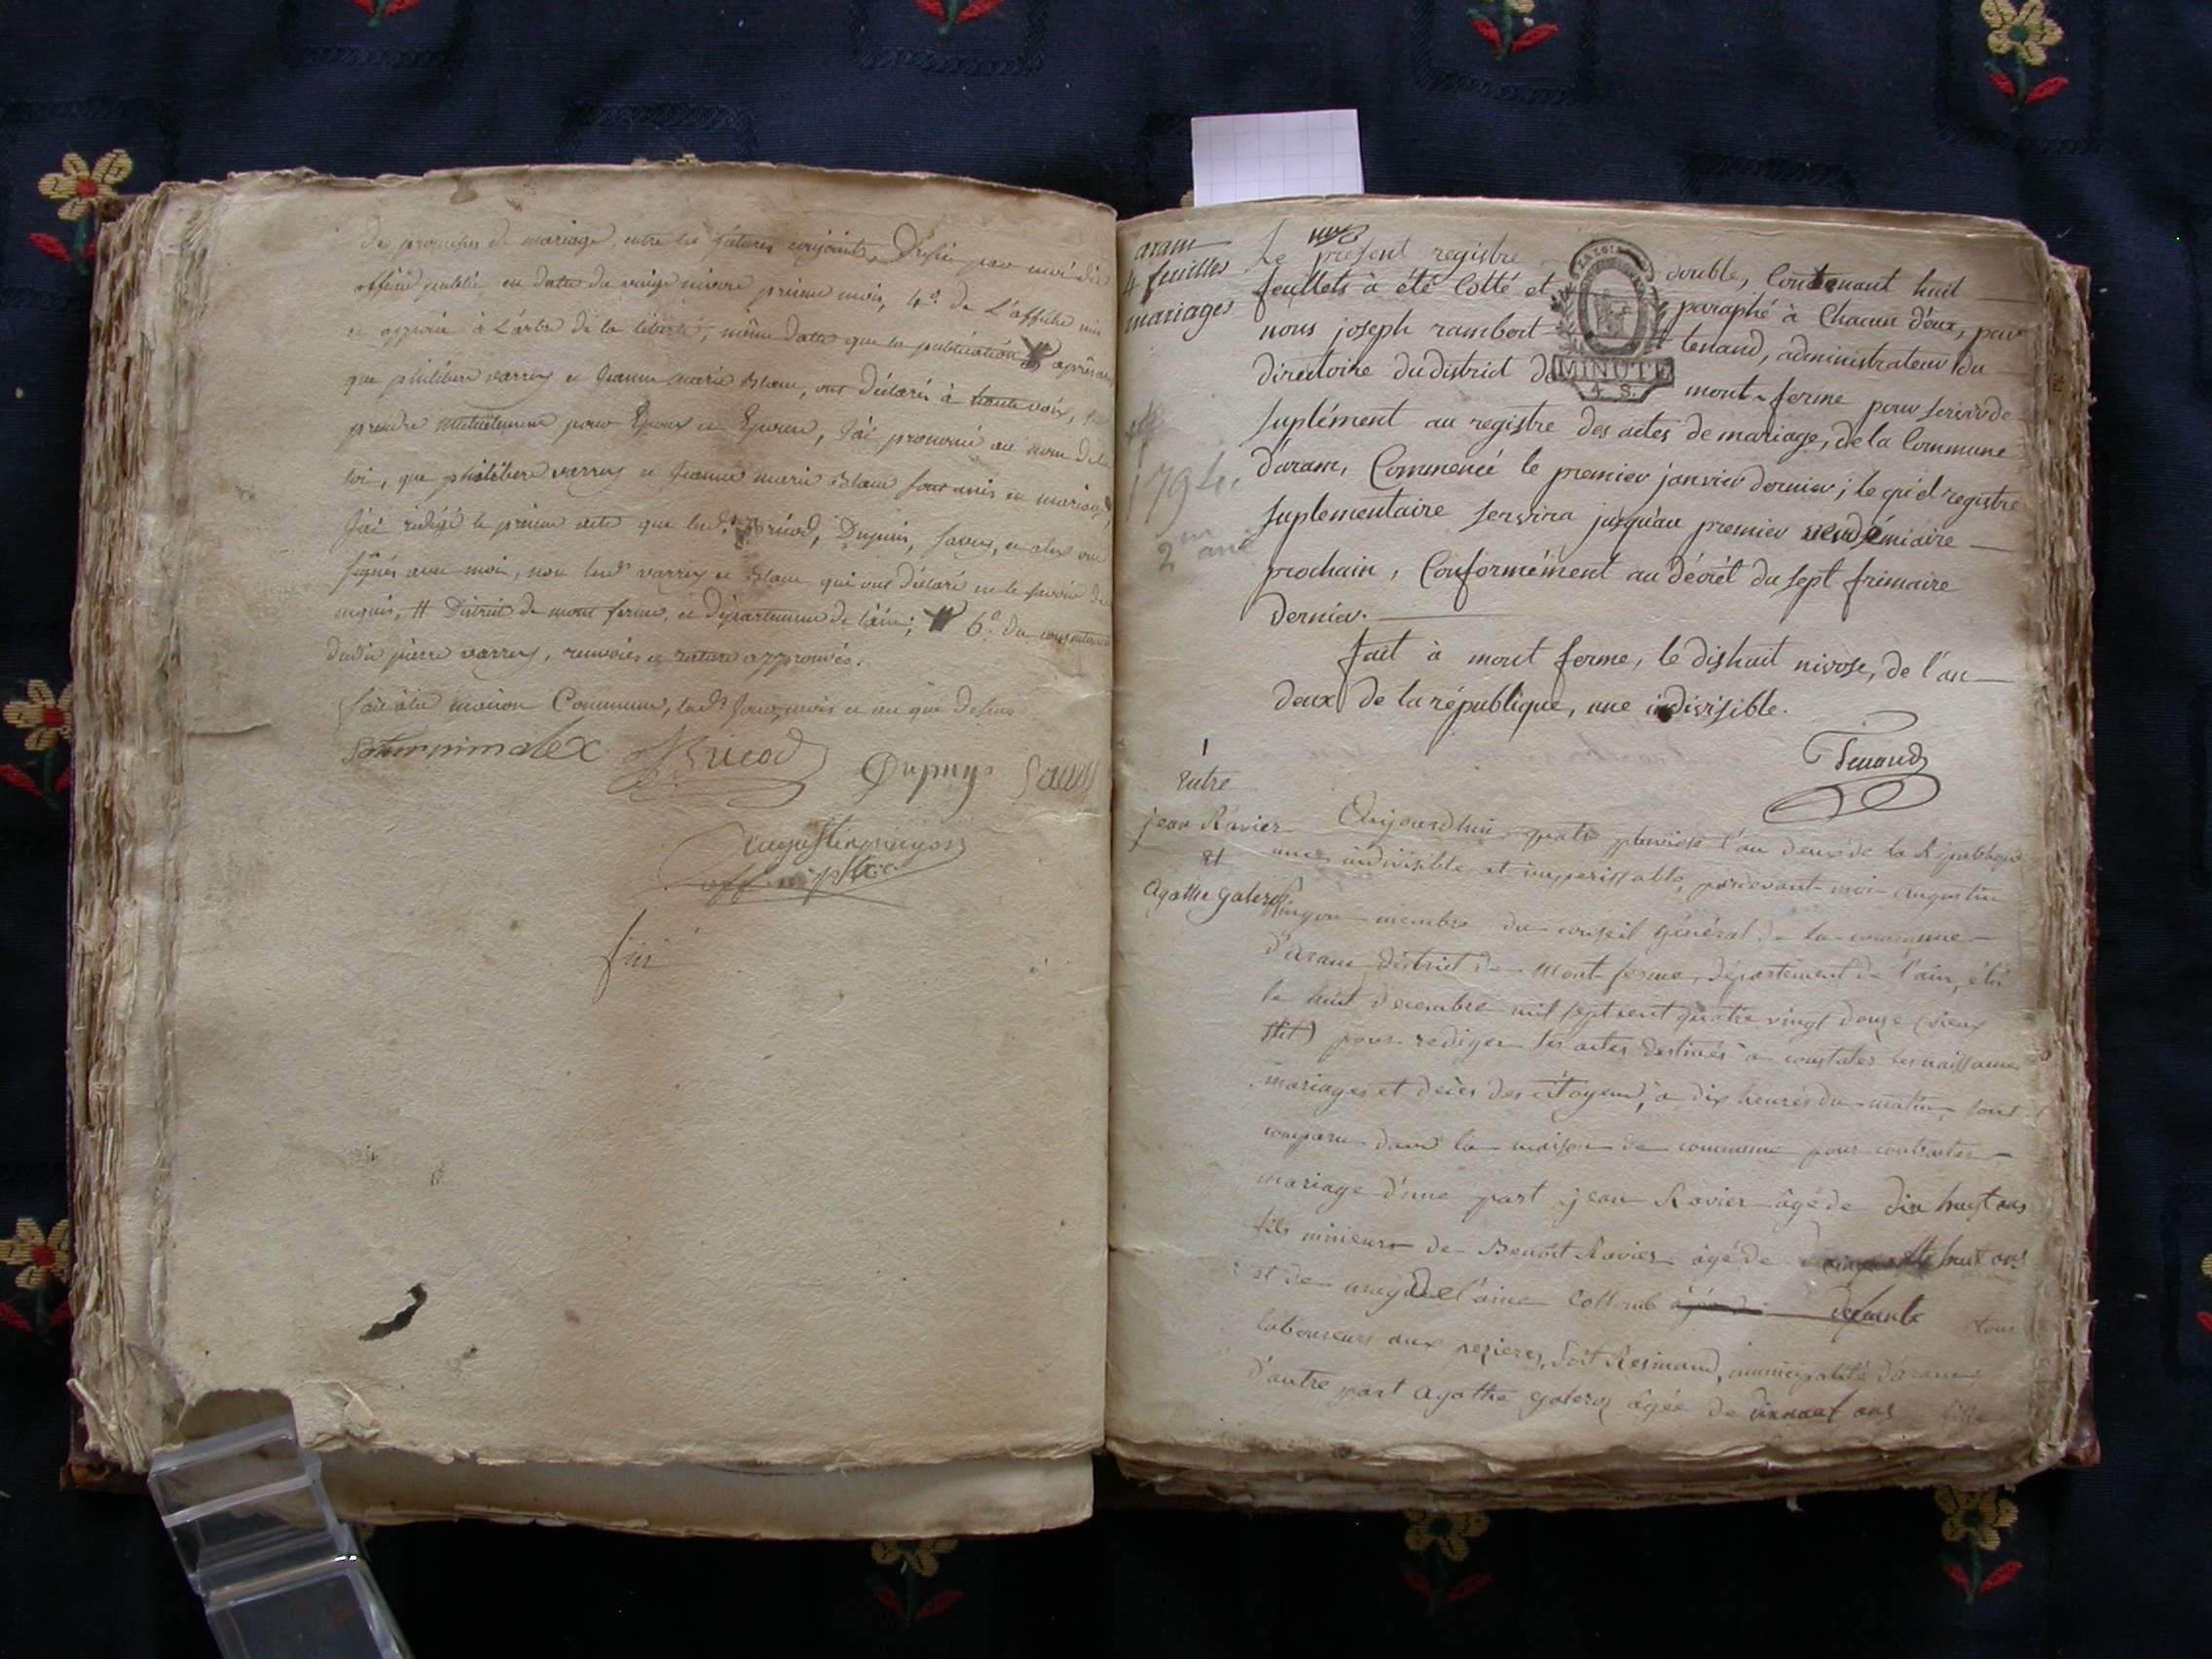 de promesses de mariage entre les futures conjoints, Dressée par moi dit
officier public, en datte du vingt nivose présent mois, 4.º de L'affiche mis
et apposée à L'arbre de la liberté, même datte que la publication après
que philibert varrey et Jeanne marie Blanc, ont déclaré à haute voix, se
prendre mutuellement pour Epoux et Epouse, J'ai prononcé au nom de la
loi, que philibert varrey et Jeanne marie Blanc sont unis en mariage,
J'ai rédigé le présent acte que lesd.ts Bricod, Dupuis, Savey, et alex ont
signés avec moi, non lesd.ts varrey et Blanc qui ont déclaré ne le savoir de
enquis, # District de mont ferme, et département de l'ain; 6.º du consentement
dudit pierre varrey, renvoies et rature approuvés.
fait à la maison Commune, lesd.ts jour, mois et an que dessus
Saturnin alex Bricod Dupuys Savey
augustin pingon
off. public
fini
aram
4 feuilles
mariages
Le présent registre double, Contenant huit
feullets à été Cotté et paraphé à Chacun d'eux, par
nous joseph rambert tenand, administrateur du
directoire du district de mont-ferme pour servir de
MINUTE
4. S.
suplément au registre des actes de mariage, de la Commune
d'aram, Commencé le premier janvier dernier; le qu'el registre
1794.
suplementaire servira jusqu'au premier vendémiaire
2.me anné
prochain, Conformément au décrét du sept frimaire
dernier.
fait à mont ferme, le dishuit nivose, de l'an
deux de la république, une indivisible.
Tenand
1
Entre
jean Ravier
et
Agathe galery
Aujourdhui quatre pluviose l'an deux de la République
une indivisible et imperissable, pardevant moi Augustin
Pingon membre du conseil général de la commune
d'aram, district de Mont-ferme, département de l'ain, élu
le huit decembre mil sept cent quatre vingt douze (vieux
stil) pour rediger les actes destinés a constater les naissances
mariages et decès des citoyens, a dix heures du matin, sont
comparu dans la maison de commune pour contracter
mariage d'une part jean Ravier âgé de dix huyt ans
fils mineur de Benoit Ravier âgé de huit ans
et de magdelaine Collomb defunte tous
laboureurs aux pezieres, soit Resinand, municipalité d'aram
d'autre part Agathe galery âgée de dixneuf ans fille